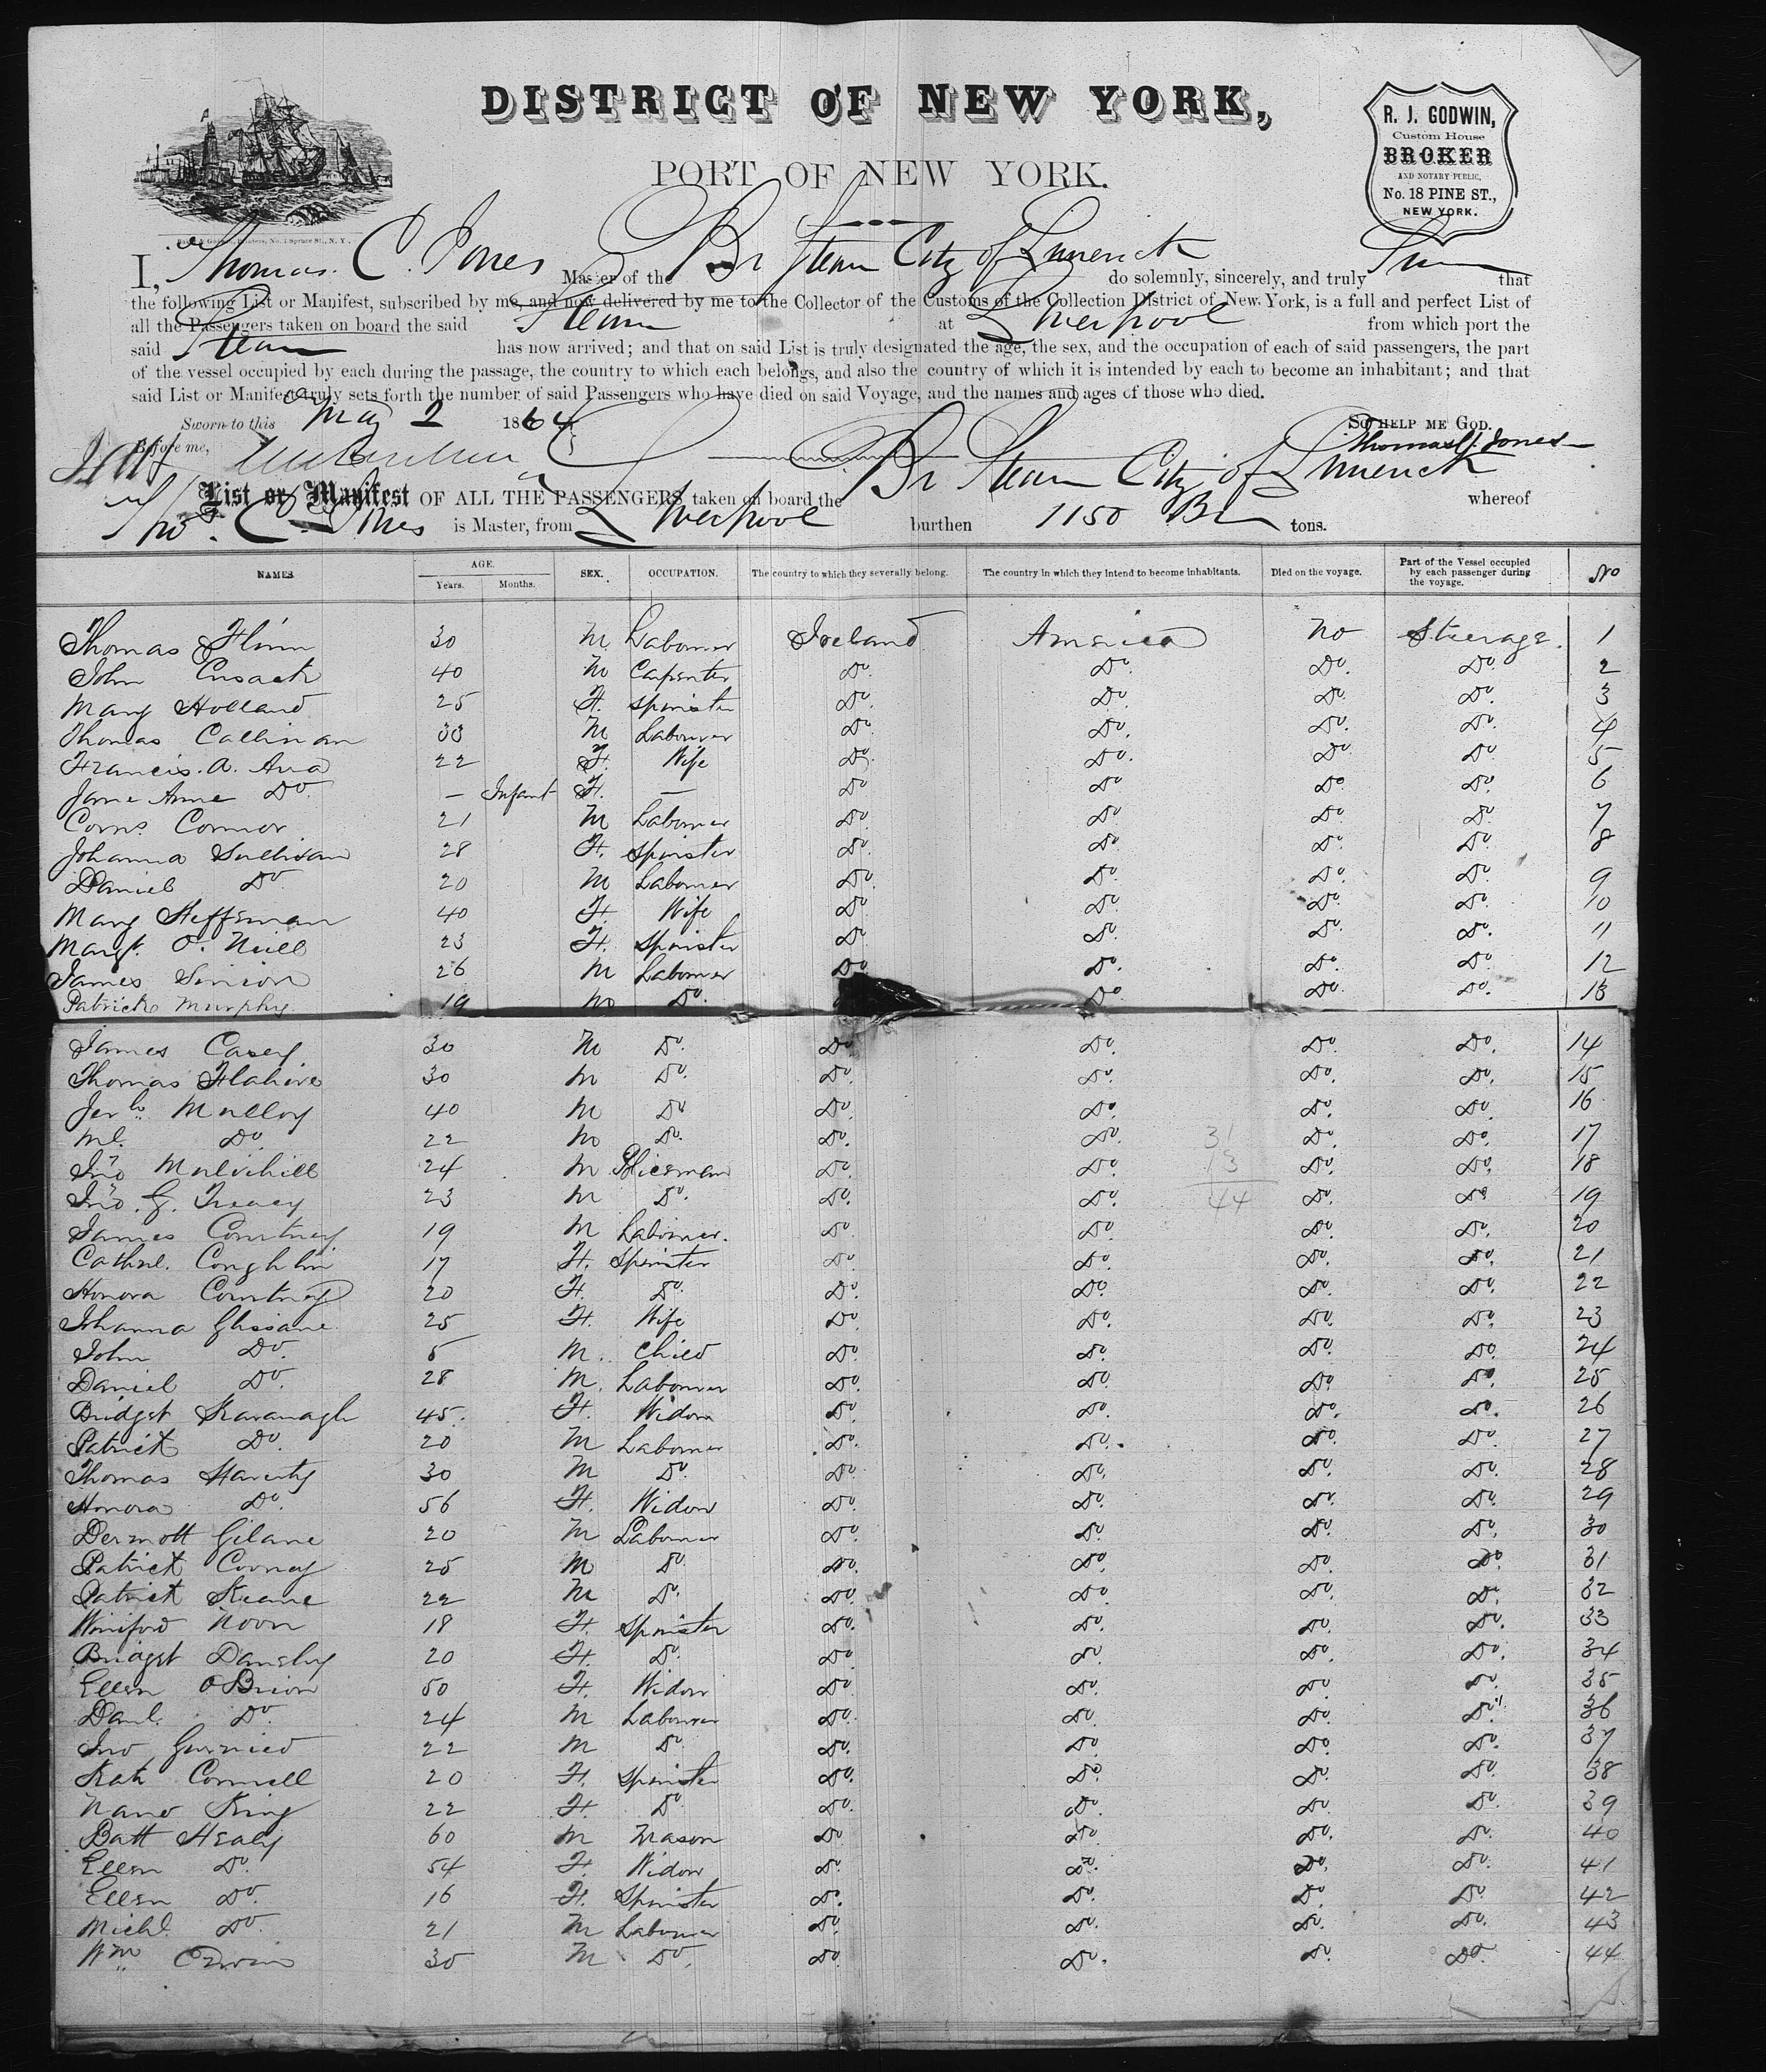 DISTRICT OF NEW YORK,
PORT OF NEW YORK.
R. J. GODWIN,
Custom House
BROKER
AND NOTARY PUBLIC,
No. 18 PINE ST.,
NEW YORK.
I, Thomas C. Jones Master of the Br Steam City of Limerick do solemnly, sincerely, and truly that
the following List or Manifest, subscribed by me, and now delivered by me to the Collector of the Customs of the Collection District of New York, is a full and perfect List of
all the Passengers taken on board the said Steam at Liverpool from which port the
said Steam has now arrived; and that on said List is truly designated the age, the sex, and the occupation of each of said passengers, the part
of the vessel occupied by each during the passage, the country to which each belongs, and also the country of which it is intended by each to become an inhabitant; and that
said List or Manifest truly sets forth the number of said Passengers who have died on said Voyage, and the names and ages of those who died.
Sworn to this May 2 1864 So HELP ME GOD.
Before me, Thomas C. Jones
List or Manifest OF ALL THE PASSENGERS taken on board the Br Steam City of Limerick whereof
Thos. C Jones is Master, from Liverpool burthen 1150 Br tons.
NAMES. AGE. Years. Months. SEX. OCCUPATION. The country to which they severally belong. The country in which they intend to become inhabitants. Died on the voyage. Part of the Vessel occupied by each passenger during the voyage. No
Thomas Flinn 30 M Labourer Ireland America No Steerage. 1
John Cusack 40 M Carpenter Do. Do. Do. Do. 2
Mary Holland 25 F. Spinster Do. Do. Do. Do. 3
Thomas Callinan 33 M Labourer Do. Do. Do. Do. 4
Francis. A. 22 F. Wife Do. Do. Do. Do. 5
Jane Anne Do. – Infant F. — Do Do Do Do. 6
Corns. Connor 21 M Labourer Do. Do. Do. Do. 7
Johanna Sullivan 28 F. Spinster Do. Do. Do. Do. 8
Daniel Do. 20 M Labourer Do. Do. Do. Do. 9
Mary Heffernan 40 F. Wife Do. Do. Do. Do. 10
Margt. O. Neill 23 F. Spinster Do. Do. Do. Do. 11
James 26 M Labourer Do Do. Do. Do. 12
Patrick Murphy 19 M Do. Do Do. Do. 13
James Casey 30 M Do. Do Do. Do. Do. 14
Thomas Flahive 30 M Do. Do. Do. Do. Do. 15
Jerh. Mulloy 40 M Do Do. Do. Do. Do. 16
Ml. Do 22 M Do. Do. Do. Do. Do. 17
Jno Mulvihill 24 M Policeman Do. Do. Do. Do. 18
Jno. G. Treacy 23 M Do. Do. Do. Do. Do 19
31
13
44
James Courtney 19 M Labourer. Do. Do. Do. Do. 20
Cathne. Coughlin 17 F. Spinster Do. Do. Do. Do. 21
Honora Courtney 20 F. Do. Do. Do. Do. Do. 22
Johanna Glissane 25 F. Wife Do. Do. Do. Do. 23
John Do. 5 M. Child Do. Do. Do. Do. 24
Daniel Do. 28 M. Labourer Do. Do. Do. Do. 25
Bridget Kavanagh 45. F. Widow Do. Do. Do. Do. 26
Patrick Do. 20 M Labourer Do. Do. Do. Do. 27
Thomas Haverty 30 M Do. Do. Do. Do. Do. 28
Honora Do. 56 F. Widow Do. Do. Do. Do. 29
Dermott Gilane 20 M Labourer Do. Do. Do. Do. 30
Patrick Cooney 25 M Do. Do. Do. Do. Do. 31
Patrick Keane 22 M Do. Do. Do. Do. Do. 32
Winiford Noon 18 F. Spinster Do. Do. Do. Do. 33
Bridget 20 F. Do. Do. Do. Do. Do. 34
Ellen O Brien 50 F. Widow Do. Do. Do. Do. 35
Danl. Do. 24 M Labourer Do. Do. Do. Do. 36
Jno 22 M Do Do. Do. Do. Do. 37
Kate Connell 20 F. Spinster Do. Do. Do. Do. 38
Nano King 22 F. Do Do. Do. Do. Do. 39
Batt Healy 60 M Mason Do. Do. Do. Do. 40
Ellen Do. 54 F. Widow Do. Do. Do. Do. 41
Ellen Do. 16 F. Spinster Do. Do. Do. Do. 42
Michl. Do. 21 M Labourer Do. Do. Do. Do. 43
Wm. 30 M Do. Do. Do. Do. Do. 44